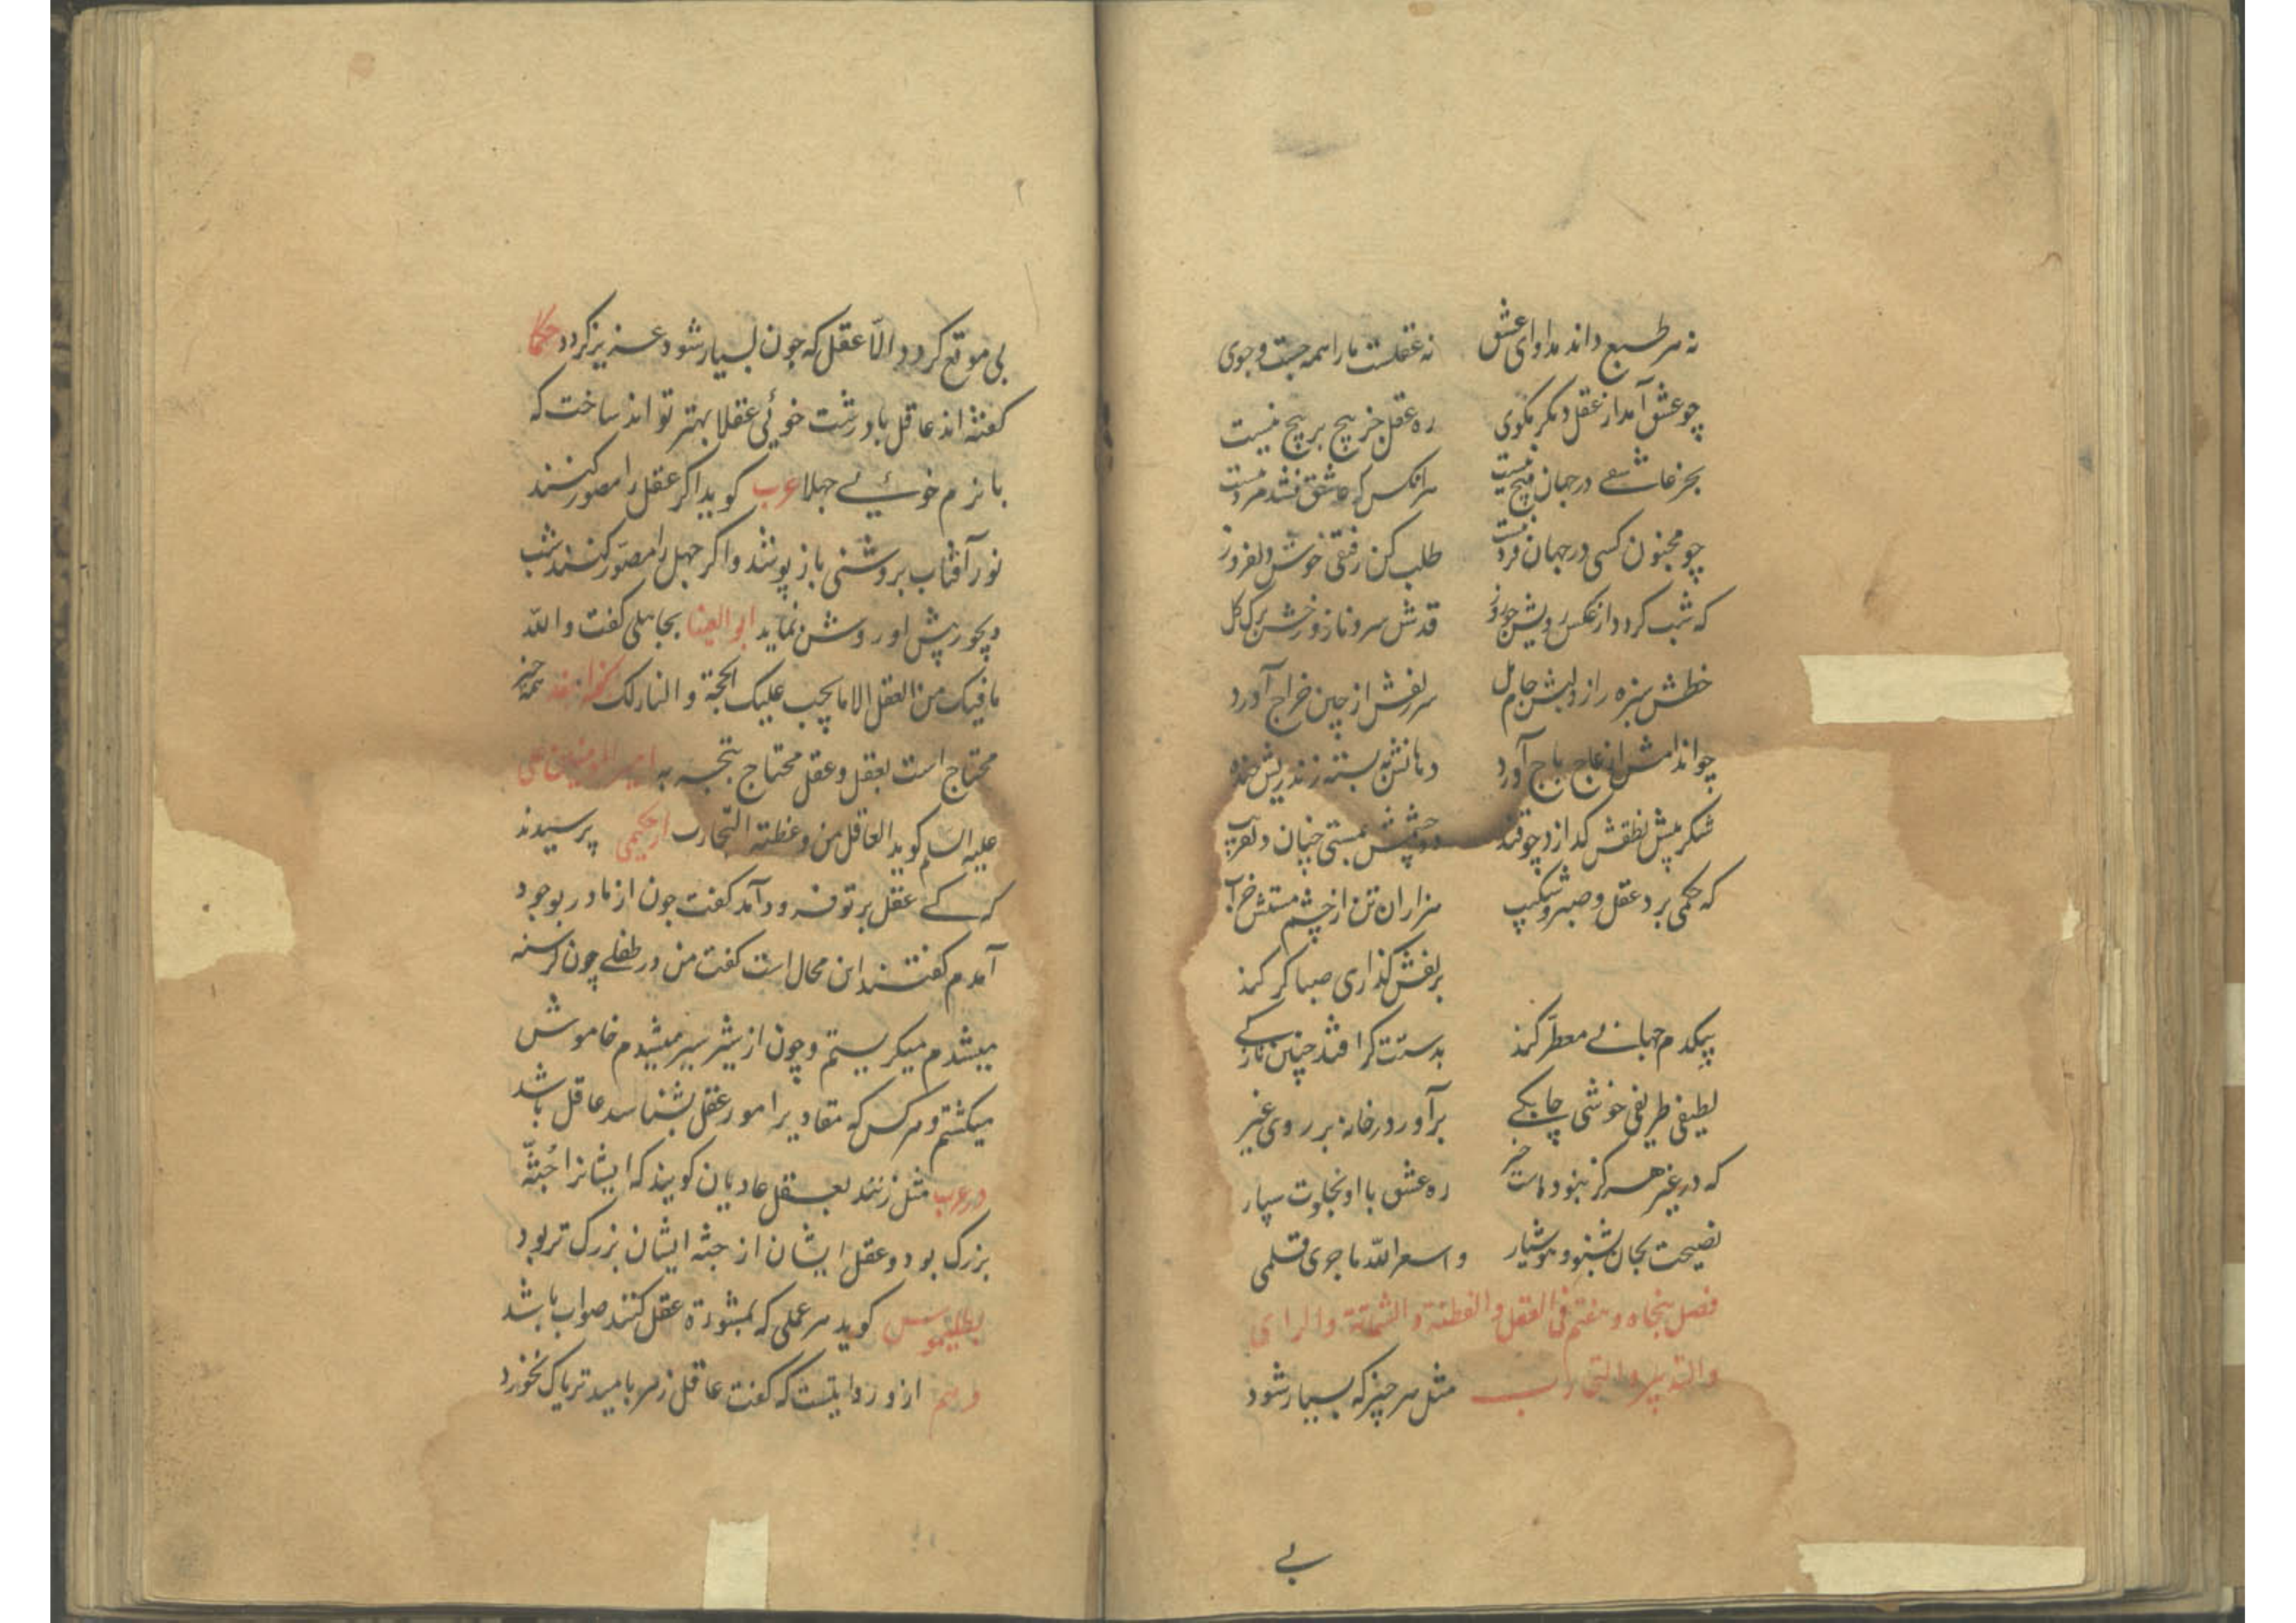 نه هر طبع داند مداوای عشق نه عقلست ما را همه جست و جوی
چو عشق آمد از عقل دیگر مگوی ره عقل جز پیچ بر پیچ نیست
بجز عاشقے در جهان هیچ نیست هر انکس که عاشق نشد مرد نیست
چو مجنون کسی در جهان فرد نیست طلب کن رفیقی خوش دلفروز
که شب کردد از عکس رویش چو روز قدش سرو ناز و رخش برک کل
خطش سبزه راز و لبش جام مل سر زلفش از چین خراج آورد
چو اندامش از عاج باج آورد دهانش به بسته زند ریش خنده
شکر پیش نطقش کدازد چو قند دو چشمش بمستی چنان دلفریب
که حکمی برد عقل و صبر و شکیب هزاران تن از چشم مستش خراب
بزلفش کذاری صبا کر کند
بیکدم جهانے معطر کند بدستت کر افتد چنین نازکے
لطیفی ظریفی خوشی چابکے برآور در خانه بر روی غیر
که در غیر هرکز نبوداست خیر ره عشق با او بخلوت سپار
نصیحت بجان بشنو و هوشیار و اسعر الله ما جری قلمی
فصل پنجاه و هفتم فی العقل و الفطنة و الشمتة والرای
والتدبیر والتجارب مثل هر چیز که بسیار شود
بے
بی موقع کردد الّا عقل که چون بسیار شود عزیز کردد حکما
کفته اند عاقل با درشت خوئی عقلا بهتر تواند ساخت که
با نرم خوئیے جهلا عرب کوید اکر عقل را مصور کنند
نور آفتاب بروشنی باز پوشند و اکر جهل را مصوّر کنند شب
دیجور پیش او روشن نماید ابو العینا بجاهلی کفت والله
ما فیک من العقل الا ما یجب علیک الحجة و النار لک همه چیز
محتاج است بعقل و عقل محتاج بتجربه امیر المؤمنین علی
علیه السلم کوید العاقل من وعظته التجارب از حکیمی پرسیدند
که کے عقل بر تو فرود آمد کفت چون از مادر بوجود
آمدم کفتند این محال است کفت من در طفلے چون کرسنه
میشدم میکریستم و چون از شیر سیر میشدم خاموش
میکشتم و هر کس که مقادیر امور عقل بشناسد عاقل باشد
در عرب مثل زنند بعقل عادیان کویند که ایشانرا جُثّه
بزرک بود و عقل ایشان از جثه ایشان بزرک تر بود
بطلیموس کوید هر عملی که بمشورة عقل کنند صواب باشد
و هم ازو روایتست که کفت عاقل زهر بامید تریاک نخورد